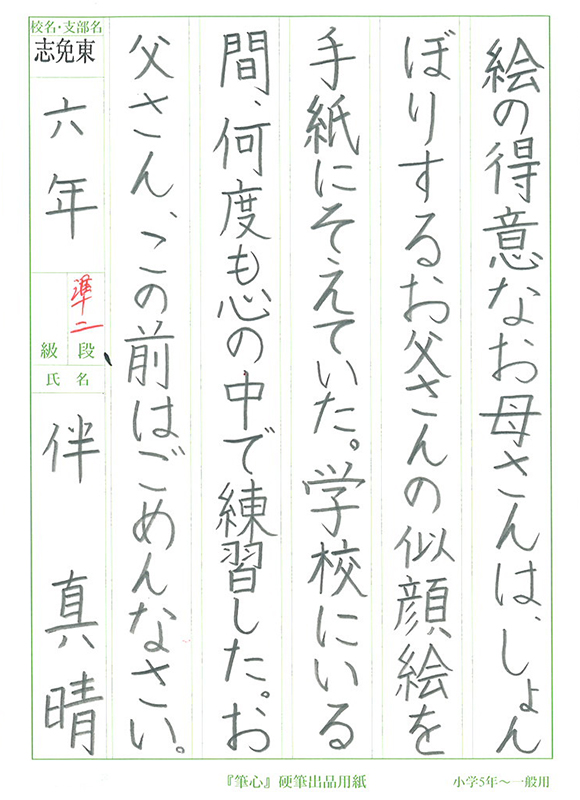 絵の得意なお母さんは、しょん
ぼりするお父さんの似顔絵を
手紙にそえていた。学校にいる
間、何度も心の中で練習した。お
父さん、この前はごめんなさい。
校名・支部名
志免東
六年
準二
段
級
氏名
伴真晴
『筆心』硬筆出品用紙
小学5年～一般用